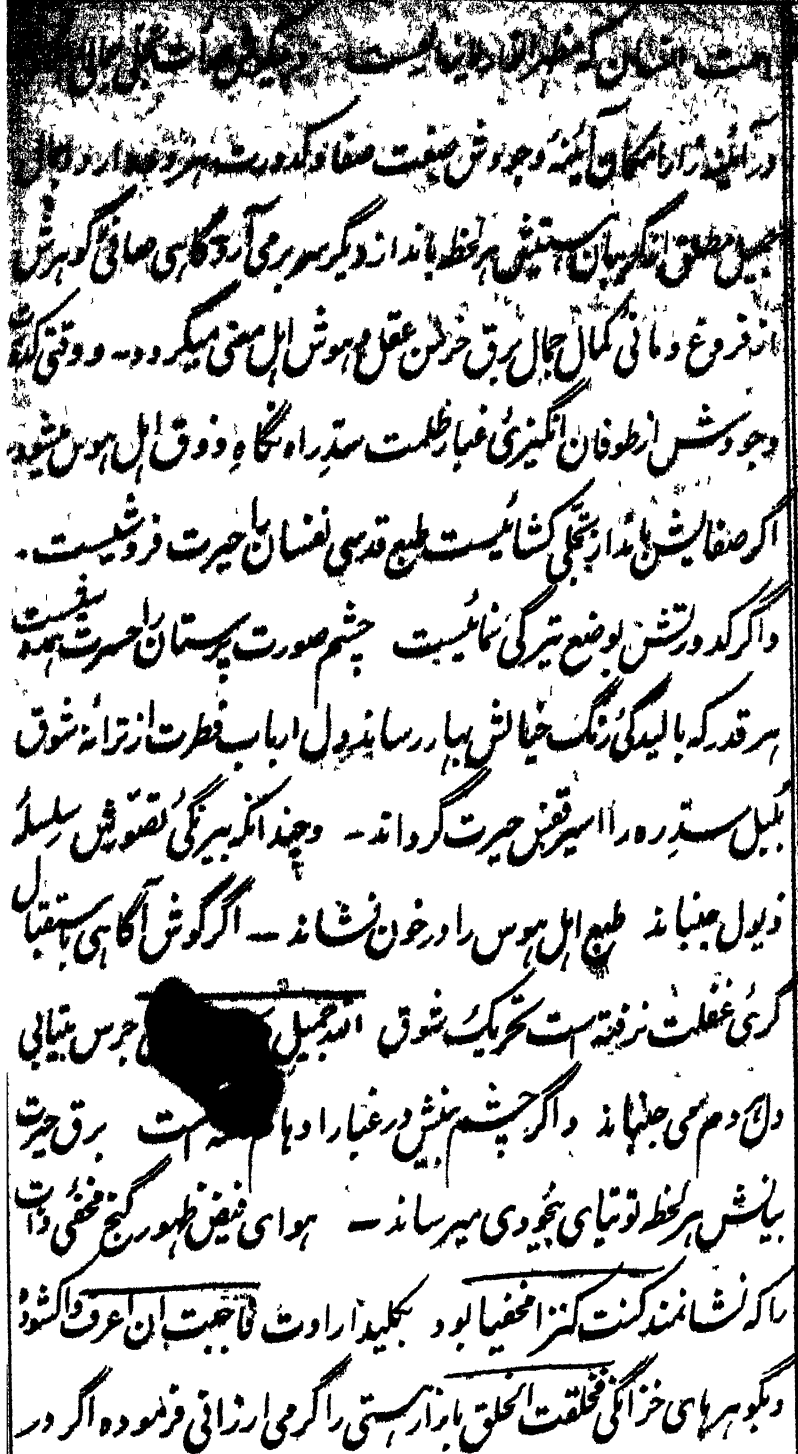 در آئینه زار امکان آئینهٔ وجودش صیقت صفا و کدورت
جمیل مطلق از گریبان هستیش هر لحظه بانداز دیگر سر بر می آرد گاهی صافیٔ گوهرش
از فروغ دمائی کمال جمال برق خرمن عقل و هوش اهل معنی میگردد۔ و وقتی کدورت
وجودش از طوفان انگیزیٔ غبار ظلمت سدِّراه نگاهِ ذوق اهل هوس میشود
اگر صفایش بانداز تجلی کشائیست طبع قدسی نفسان با حیرت فروشیست۔
و اگر کدورتش بوضع تیرگی نمائیست چشم صورت پرستان را حسرت
هر قدر که بالیدگیٔ رنگ خیالش ببار رساند دل ارباب فطرت از ترانهٔ شوق
بلبل سدره را اسیر قفس حیرت گرداند۔ و چندانکه بیرنگیٔ تصوّرش سلسلهٔ
ذبول جنباند طبع اهل هوس را در خون نشاند — اگر گوش آگاهی باستقبال
گریٔ غفلت نرفته است تحریک شوق الله جمیل جرس بیتابی
دل دم می جنباند و اگر چشم بینش در غبار اوهام است برق حیرت
بیانش هر لحظه توتیای بیخودی میرساند — هوای فیض ظهور گنج مخفیٔ ذات
را که نشانمند کنت کنزا مخفیا بود بکلید ارادت فاحببت ان اعرف واکشود
و بگوهرهای خزانگی فخلقت الخلق بازار هستی را گرمی ارزانی فرموده اگر در